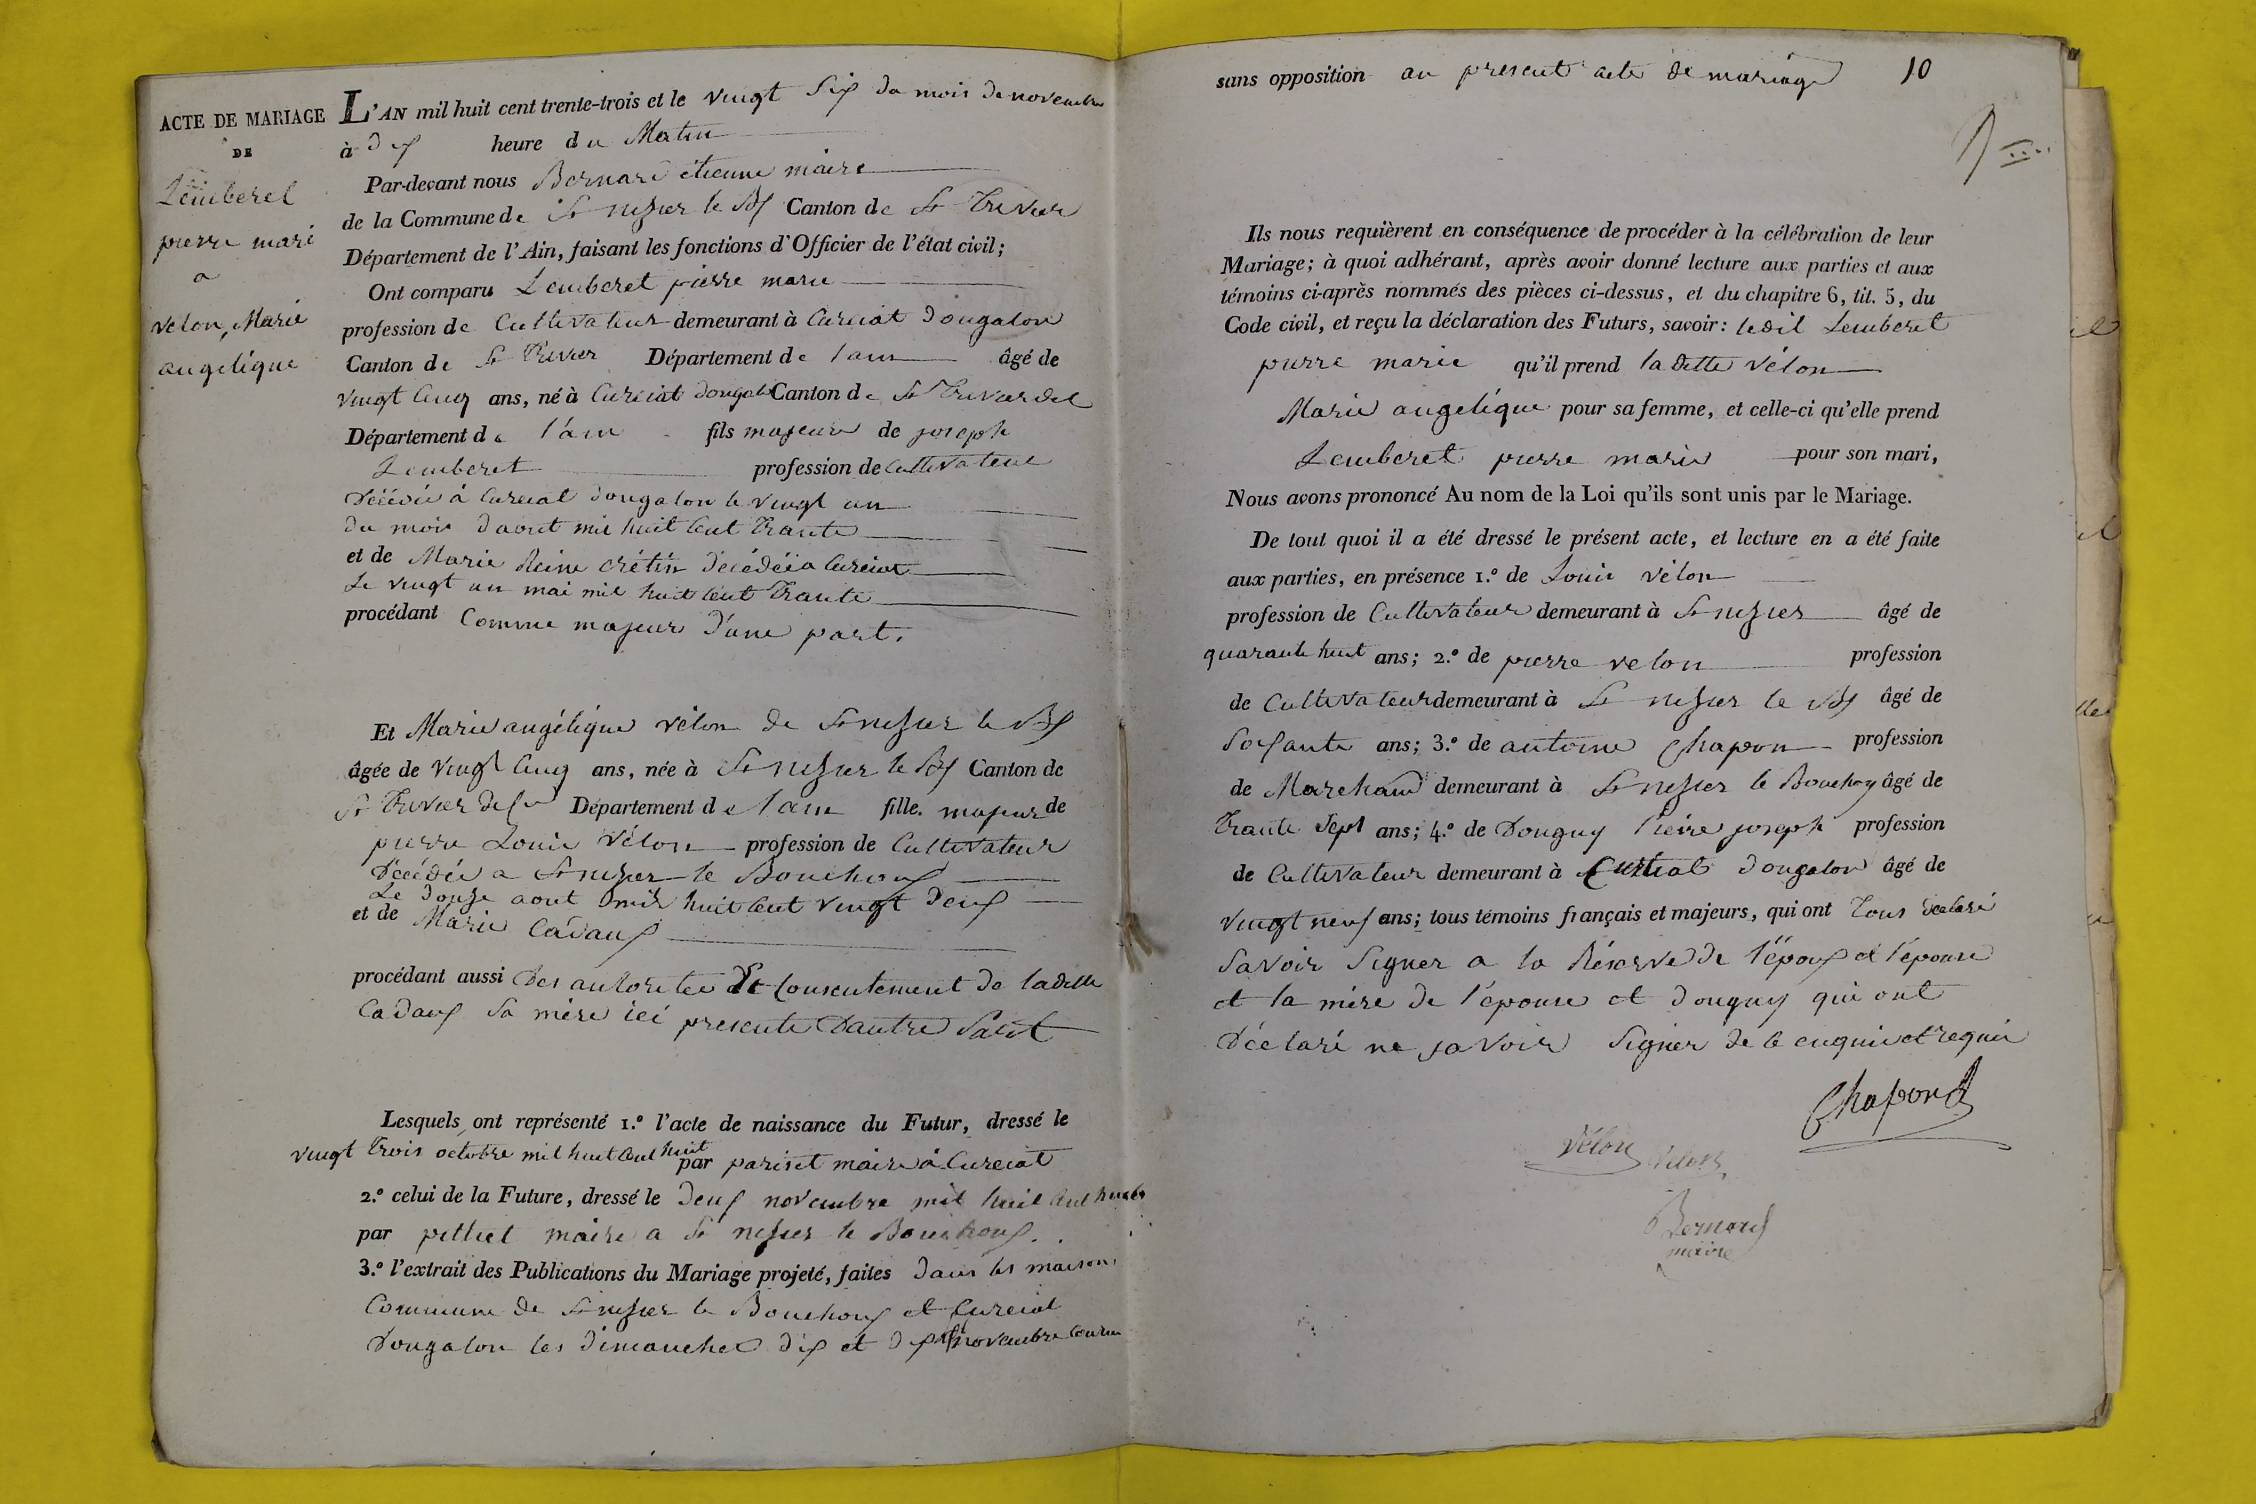 ACTE DE MARIAGE
DE
Lemberet
pierre mari
a
velon, Marie
angelique
L'AN mil huit cent trente-trois et le vingt six du mois de novembre
à dix heure du Matin
Par-devant nous Bernard étienne maire
de la Commune de St nizier le Bx Canton de St Trivier
Département de l'Ain, faisant les fonctions d'Officier de l'état civil;
Ont comparu Lemberet pierre marie
profession de Cultivateur demeurant à Curciat dongalon
Canton de St Trivier Département de lain âgé de
vingt cinq ans, né à Curciat dongalon Canton de St Trivier de C
Département de l'ain fils majeur de joseph
Lemberet profession de Cultivateur
Décédé à Curciat dongalon le vingt un
du mois daout mil huit cent Trante
et de Marie Reine crétin décédéé a Curciat
Le vingt un mai mil huit cent Trante
procédant Comme majeur d'une part.
Et Marie angélique vélon de St nizier le Bx
âgée de vingt cinq ans, née à St nizier le Bx Canton de
St Trivier de C Département de lain fille. majeur de
pierre Louis Vélon profession de Cultivateur
Décédé a St nizier le Bouchoux
Le douze aout mil huit cent vingt deux
et de Marie Cadoux
procédant aussi Des autoritée Et Consentement de ladite
Cadoux Sa mère ici presente Dautre Part
Lesquels ont représenté 1.º l'acte de naissance du Futur, dressé le
vingt Trois octobre mil huit cent huit par pariset maire à Curciat
2.º celui de la Future, dressé le deux novembre mil huit cent huit
par pelliet maire a St nizier le Bouchoux.
3.º l'extrait des Publications du Mariage projeté, faites dans les maisons
Commune de St nizier le Bouchoux et Curciat
Dongalon les dimanches dix et dix sept novembre courant
sans opposition au present acte de mariage
10
Ils nous requièrent en conséquence de procéder à la célébration de leur
Mariage; à quoi adhérant, après avoir donné lecture aux parties et aux
témoins ci-après nommés des pièces ci-dessus, et du chapitre 6, tit. 5, du
Code civil, et reçu la déclaration des Futurs, savoir: ledit Lemberet
pierre marie qu'il prend la ditte vélon
Marie angelique pour sa femme, et celle-ci qu'elle prend
Lemberet pierre marie pour son mari,
Nous avons prononcé Au nom de la Loi qu'ils sont unis par le Mariage.
De tout quoi il a été dressé le présent acte, et lecture en a été faite
aux parties, en présence 1.º de Louis vélon
profession de Cultivateur demeurant à St nizier âgé de
quarante huit ans; 2.º de pierre velon profession
de Cultivateur demeurant à St nizier le Bx âgé de
Soixante ans; 3.º de antoine Chapon profession
de Marchand demeurant à St nizier le Bouchoy âgé de
Trante Sept ans; 4.º de Donguy Pierre joseph profession
de Cultivateur demeurant à Curtiat dongalon âgé de
vingt neuf ans; tous témoins français et majeurs, qui ont Tous déclaré
Savoir Signer a la Réserve de l'époux et l'épouse
et la mère de l'épouse et donguy qui ont
Déclaré ne savoir Signer de ce enquis et requis
Chapon
Vélon Velon
Bernard
maire